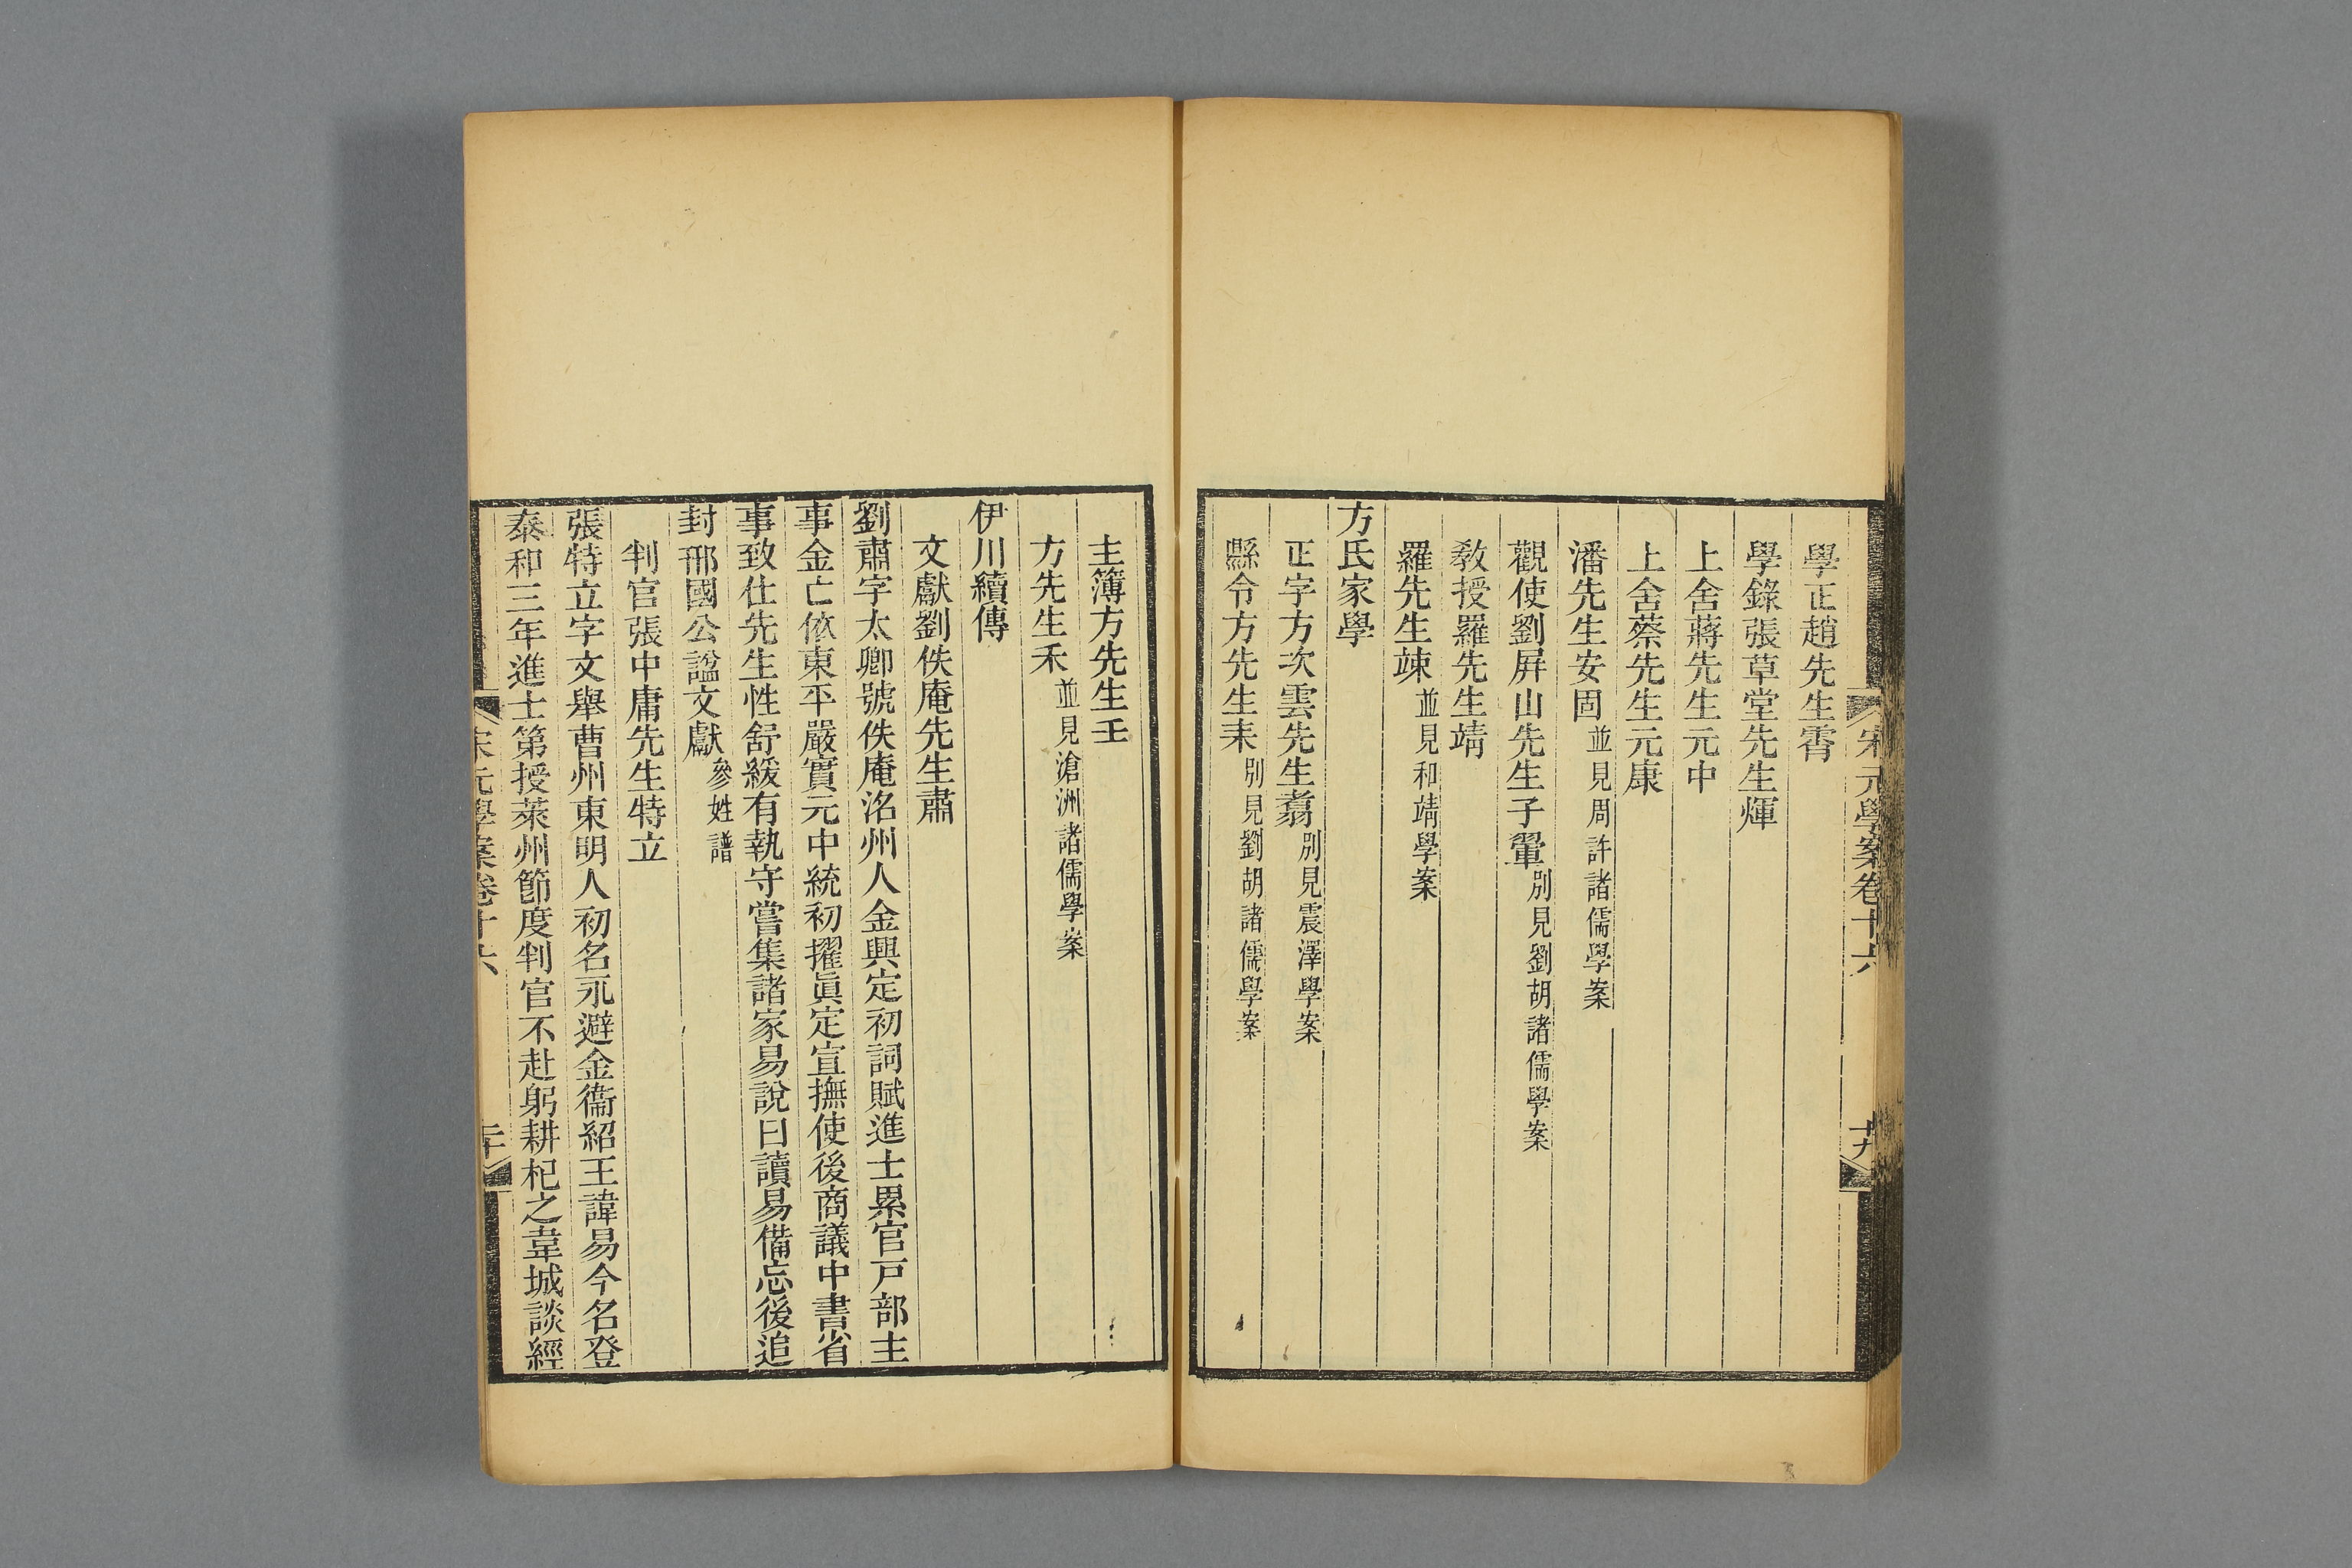 宋元學案卷十六
十九
學正趙先生霄
學錄張草堂先生煇
上舍蔣先生元中
上舍蔡先生元康
潘先生安固並見周許諸儒學案
觀使劉屏山先生子翬別見劉胡諸儒學案
敎授羅先生靖
羅先生竦並見和靖學案
方氏家學
正字方次雲先生翥別見震澤學案
縣令方先生耒別見劉胡諸儒學案
主簿方先生壬
方先生禾並見滄洲諸儒學案
伊川續傳
文獻劉佚庵先生肅
劉肅字太卿號佚庵洺州人金興定初詞賦進士累官戸部主
事金亡依東平嚴實元中統初擢眞定宣撫使後商議中書省
事致仕先生性舒緩有執守嘗集諸家易說曰讀易備忘後追
封邢國公諡文獻參姓譜
判官張中庸先生特立
張特立字文舉曹州東明人初名永避金衞紹王諱易今名登
泰和三年進士第授萊州節度判官不赴躬耕杞之韋城談經
宋元學案卷十六
二十